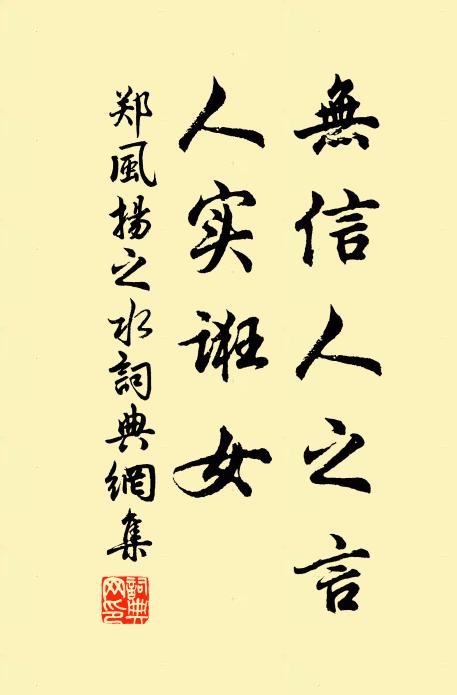 無信人之言
人实诳女
郑風揚之水詞典網集
詞典网印